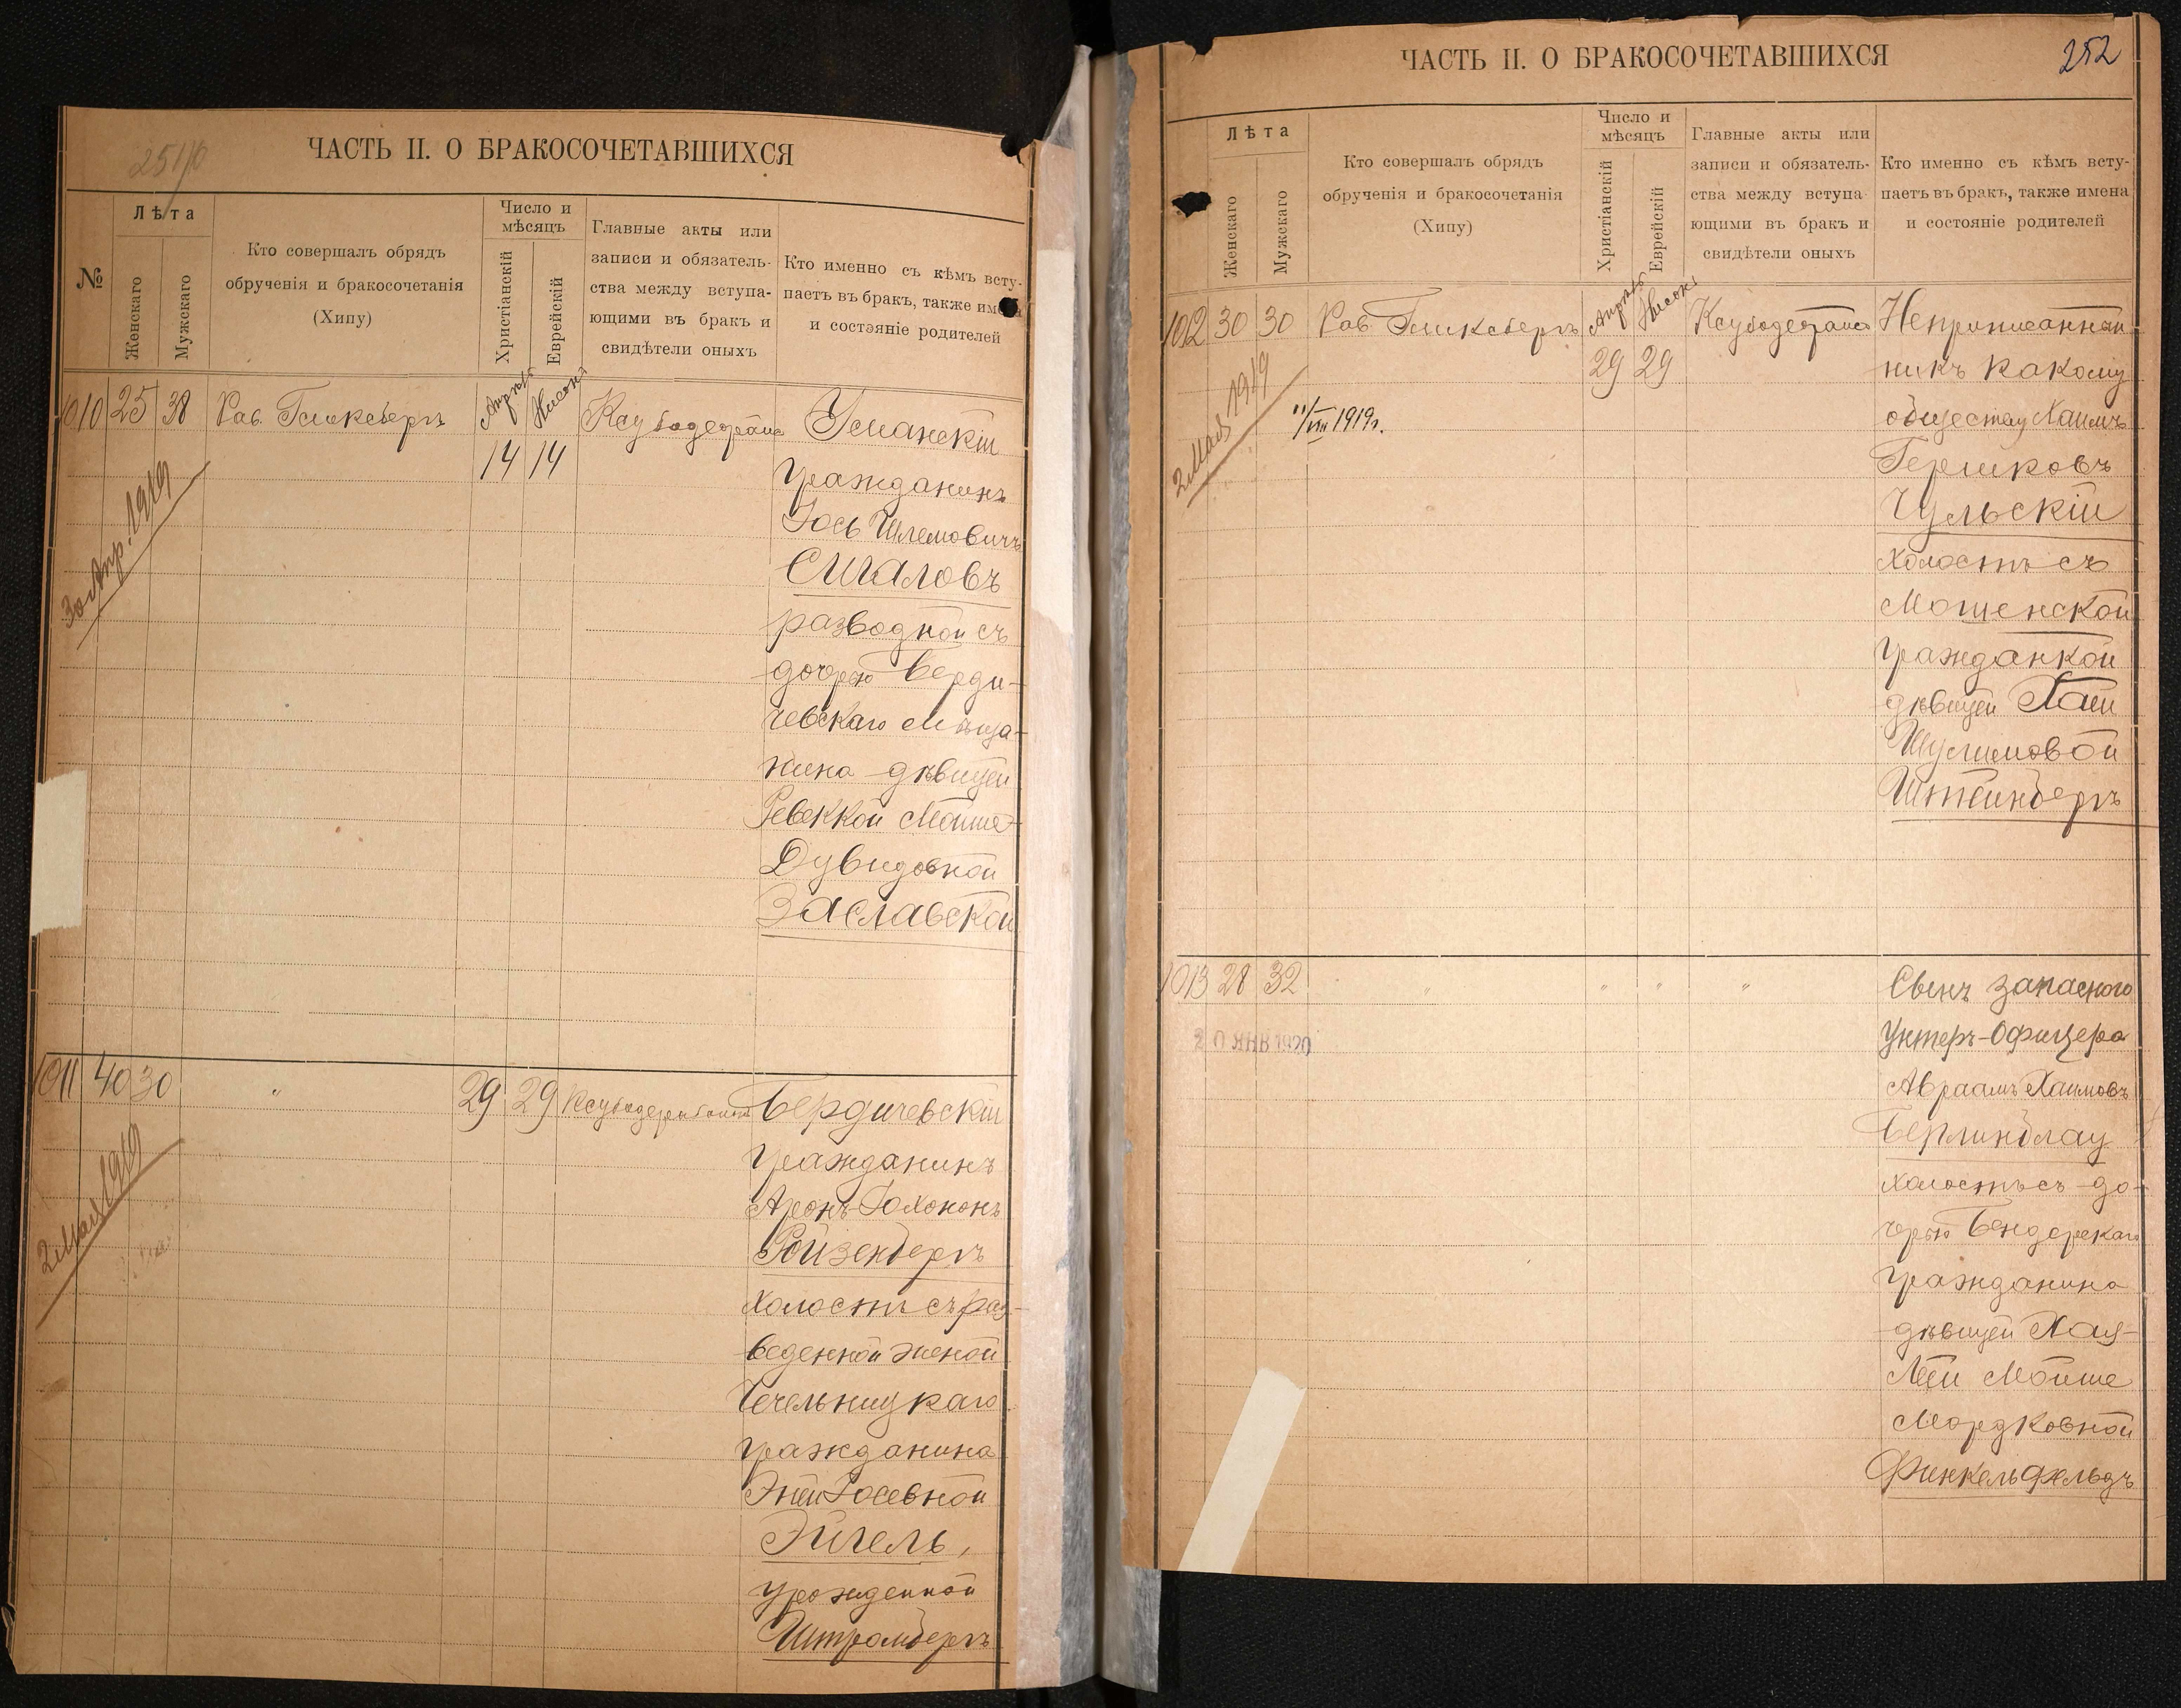 251/б
ЧАСТЬ II. О БРАКОСОЧЕТАВШИХСЯ
№
Лѣта
Женскаго
Мужскаго
Кто совершалъ обрядъ
обрученія и бракосочетанія
(Хипу)
Число и
мѣсяцъ
Христіанскій
Еврейскій
Главные акты или
записи и обязатель-
ства между вступа-
ющими въ бракъ и
свидѣтели оныхъ
Кто именно съ кѣмъ всту-
паетъ въ бракъ, также имена
и состояніе родителей
1010 25 38 Рав. Гликсбергъ Апрѣль Нисонъ
14 14
30 Апр. 1919
Уманскій
гражданинъ
Іось Шлемовичъ
Сигаловъ
разводной съ
дочерью Берди-
чевскаго мѣща-
нина дѣвицей
Ревеккой Мойше-
Дувидовной
Заславской
1011 40 30 " 29 29
2 Мая 1919
Бердичевскій
гражданинъ
Аронъ
Ройзенбергъ
холостъ съ раз-
веденной женой
Чечельницкаго
гражданина
Энтей Іосевной
Эйгель,
урожденной
Штромбергъ
ЧАСТЬ II. О БРАКОСОЧЕТАВШИХСЯ
252
Лѣта
Женскаго
Мужскаго
Кто совершалъ обрядъ
обрученія и бракосочетанія
(Хипу)
Число и
мѣсяцъ
Христіанскій
Еврейскій
Главные акты или
записи и обязатель-
ства между вступа
ющими въ бракъ и
свидѣтели оныхъ
Кто именно съ кѣмъ всту-
паетъ въ бракъ, также имена
и состояніе родителей
1012 30 30 Рав. Гликсбергъ Апрѣль Нисонъ
29 29
2 Мая 1919
11/VIII 1919г.
никъ какому
обществу Хаимъ
Гершковъ
Чульскій
холостъ съ
Мошенской
гражданкой
дѣвицей Хаей
Шулимовой
Штейнбергъ
1013 28 32 " " " "
20 ЯНВ 1920
Сынъ запасного
Унтеръ-Офицера
Авраамъ Хаимовъ
Берлинблау
холостъ съ до-
черью Бендерскаго
гражданина
дѣвицей Хая-
Леи Мойше
Мордковной
Финкельфельдъ